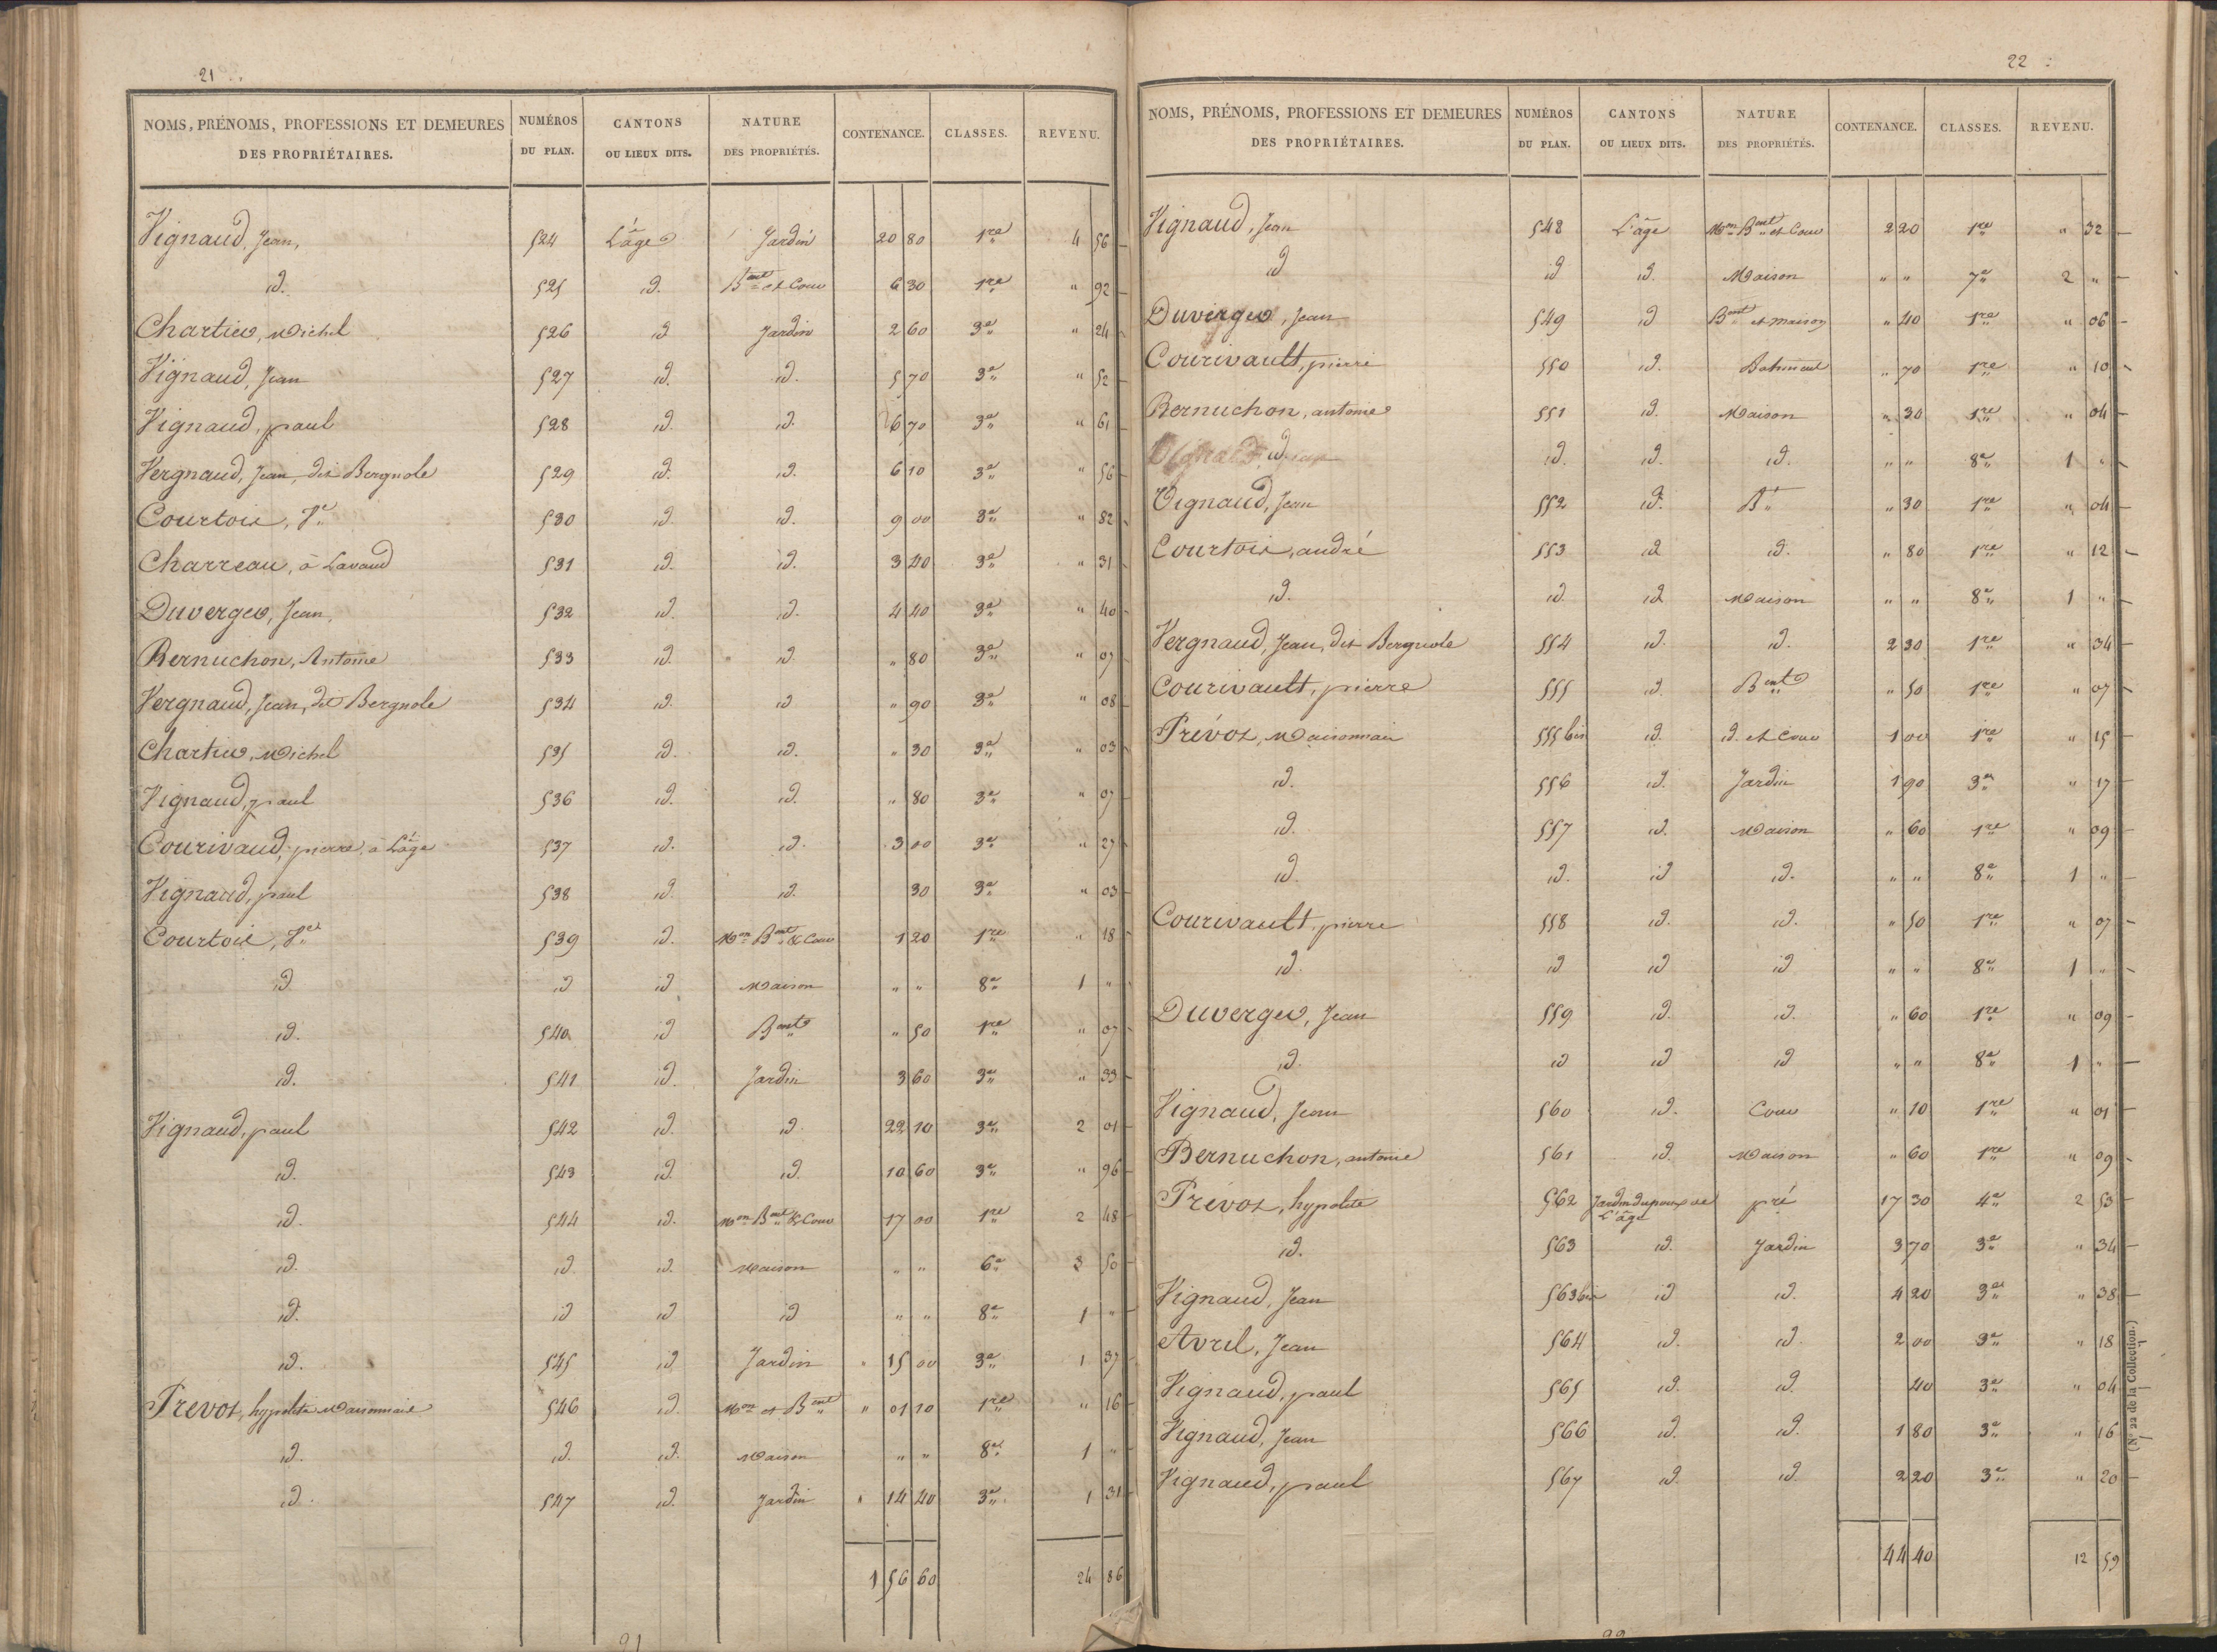 21
NOMS, PRÉNOMS, PROFESSIONS ET DEMEURES DES PROPRIÉTAIRES. NUMÉROS DU PLAN. CANTONS OU LIEUX DITS. NATURE DES PROPRIÉTÉS. CONTENANCE. CLASSES. REVENU.
Vignaud, Jean, 524 L'âge Jardin 20 80 1re 4 56
id. 525 id. Bent et Cour 6 30 1re " 92
Chartier, Michel 526 id Jardin 2 60 3e " 24
Vignaud, Jean 527 id. id. 5 70 3e " 52
Vignaud, paul 528 id. id. 6 70 3e " 61
Vergnaud, Jean, dit Bergnole 529 id. id. 6 10 3e " 56
Courtois, Je 530 id. id. 9 00 3e " 82
Charreau, à Lavaud 531 id. id. 3 40 3e " 31
Duverger, Jean, 532 id. id. 4 40 3e " 40
Bernuchon, Antoine 533 id. id " 80 3e " 07
Vergnaud, Jean, dit Bergnole 534 id. id " 90 3e " 08
Chartier, Michel 535 id. id. " 30 3e " 03
Vignaud, paul 536 id. id. " 80 3e " 07
Courivaud, pierre, à L'âge 537 id. id. 3 00 3e " 27
Vignaud, paul 538 id. id. 30 3e " 03
Courtois, Je 539 id. Mon Bent & Cour 1 20 1re " 18
id id id Maison " " 8e 1 "
id. 540 id Bent " 50 1re " 07
id. 541 id. Jardin 3 60 3e " 33
Vignaud, paul 542 id. id. 22 10 3e 2 01
id. 543 id. id. 10 60 3e " 96
id. 544 id. Mon Bent & Cour 17 00 1re 2 48
id. id. id. Maison " " 6e 3 50
id. id id id " " 8e 1 "
id. 545 id Jardin " 15 00 3e 1 37
Prevot, hypolite Maisonnais 546 id. Mon et Bent " 01 10 1re " 16
id. id. id. Maison " " 8e 1 "
id. 547 id. Jardin " 14 40 3e 1 31
1 56 60 24 86
21
22
NOMS, PRÉNOMS, PROFESSIONS ET DEMEURES DES PROPRIÉTAIRES. NUMÉROS DU PLAN. CANTONS OU LIEUX DITS. NATURE DES PROPRIÉTÉS. CONTENANCE. CLASSES. REVENU.
Vignaud, Jean 548 L'âge Mon Bent et Cour 2 20 1re " 32
id id id. Maison " " 7e 2 "
Duverger, Jean 549 id Bent et maison " 40 1re " 06
Courivault, pierre 550 id. Batiment " 70 1re " 10
Bernuchon, antoine 551 id. Maison " 30 1re " 04
id. id. id. id. " " 8e 1 "
Vignaud, Jean 552 id. Bt " 30 1re " 04
Courtois, andré 553 id id. " 80 1re " 12
id. id. id Maison " " 8e 1 "
Vergnaud, Jean, dit Bergnole 554 id. id. 2 30 1re " 34
Courivault, pierre 555 id. Bent " 50 1re " 07
Prévot, Maisonnais 555 bis id. id. et Cour 1 00 1re " 15
id. 556 id. Jardin 1 90 3e " 17
id. 557 id. Maison " 60 1re " 09
id. id. id id. " " 8e 1 "
Courivault, pierre 558 id. id. " 50 1re " 07
id. id id id " " 8e 1 "
Duverger, Jean 559 id. id. " 60 1re " 09
id. id id id " " 8e 1 "
Vignaud, Jean 560 id. Cour " 10 1re " 01
Bernuchon, antoine 561 id. Maison " 60 1re " 09
Prévot, hypolite 562 Jardin du poux de L'âge pré 17 30 4e 2 53
id. 563 id. Jardin 3 70 3e " 34
Vignaud, Jean 563 bis id id. 4 20 3e " 38
Avril, Jean 564 id. id. 2 00 3e " 18
Vignaud, paul 565 id. id. 40 3e " 04
Vignaud, Jean 566 id. id. 1 80 3e " 16
Vignaud, paul 567 id. id. 2 20 3e " 20
44 40 12 59
(N° 22 de la Collection.)